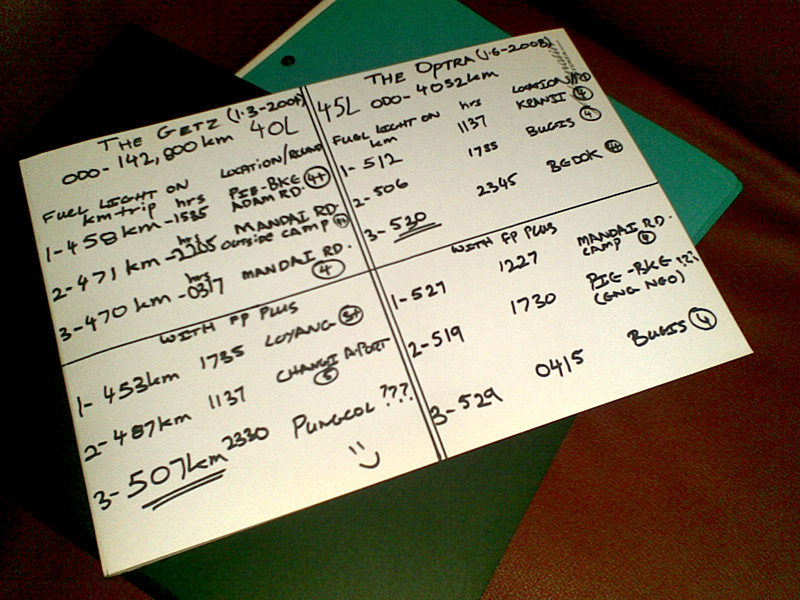 THE GETZ (1-3-2004)
000- 142,800km 40L
FUEL LIGHT ON LOCATION/ROUND
km-trip hrs
1- 458km - 1585 PIE-BKE 4+
ADAM RD.
2- 471km - hrs MANDAI RD.
OUTSIDE CAMP
3- 470km - 0317 hrs MANDAI RD.
4
WITH FP PLUS
1- 453km 1735 LOYANG 3+
2- 487km 1137 CHANGI A-PORT
5
3- 507km 2330 PUNGGOL ???
THE OPTRA (1-6-2008)
45L 000- 4032km
FUEL LIGHT ON hrs
km
1- 512 1137 KRANJI 4
2- 506 1735 BUGIS 4
3- 530 2345 BEDOK
WITH FP PLUS
1- 527 1227 MANDAI RD.
CAMP 4
2- 519 1730 PIE-BKE ???
(ENG NEO)
3- 529 0415 BUGIS 4